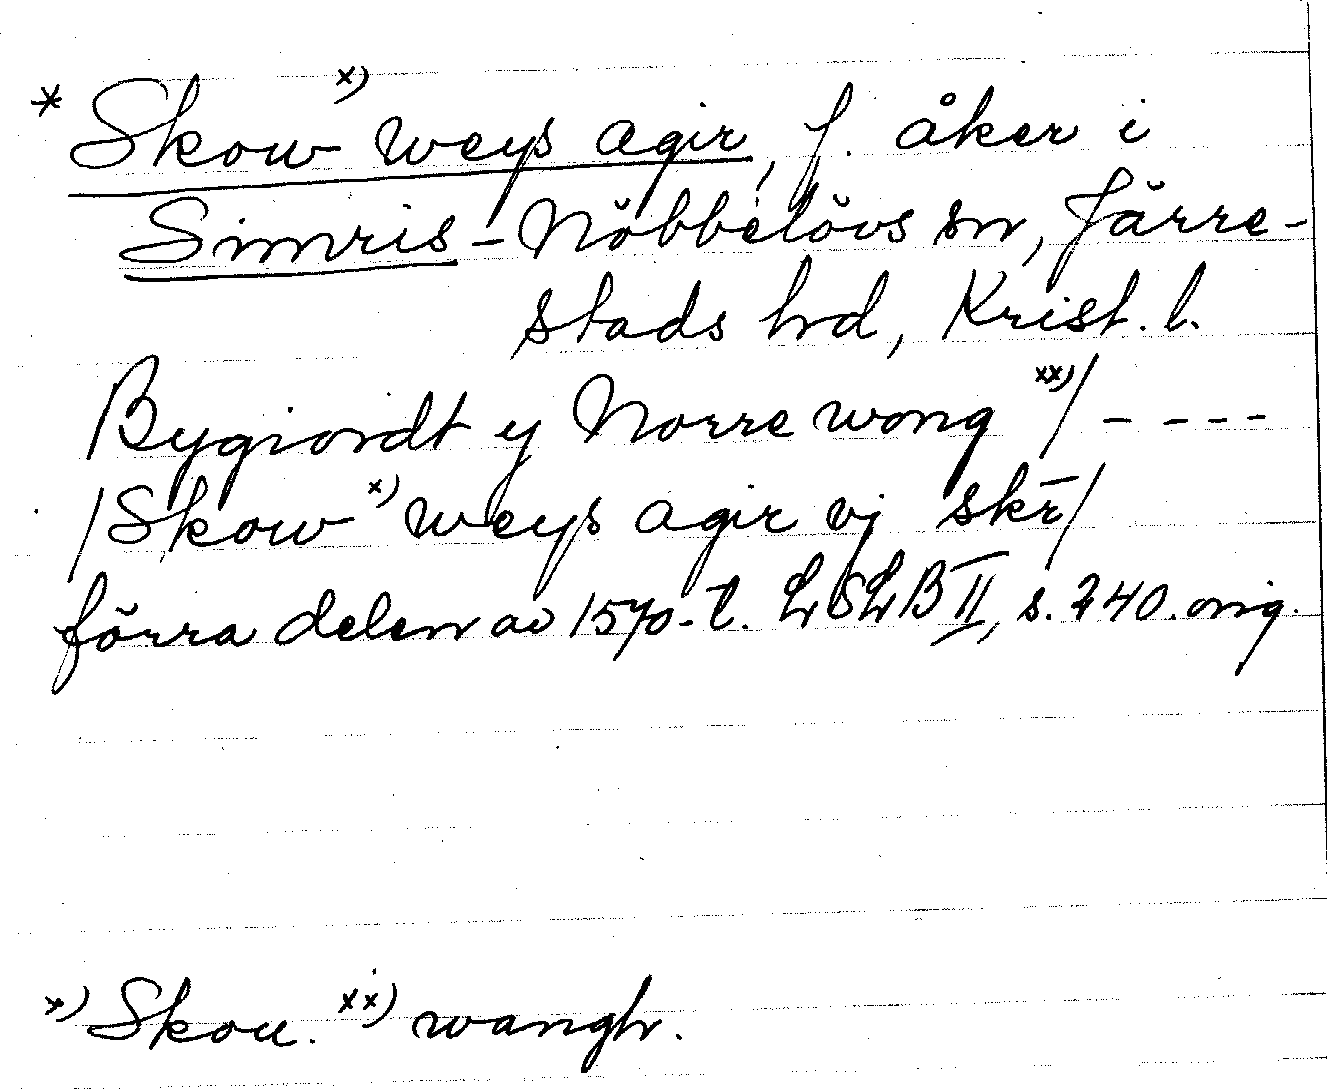 * Skow x) weys agir, f. åker i
Simris-Nöbbelövs sn, Järre-
stads hd, Krist. l.
Bygiordt y Norre wong xx) / - - - -
/ Skow x) weys agir vj skr̄ /
förra delen av 1570-t. LSLB II, s. 240. orig.
x) Skou. xx) wangh.